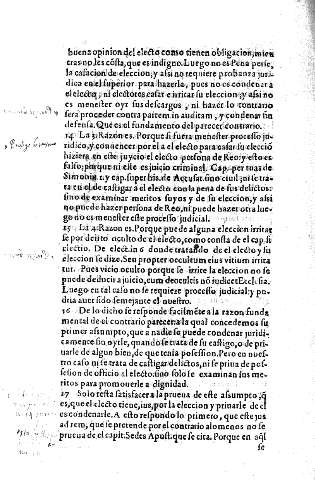 buena opinion del electo como tienen obligacion, mien
tras no les cõsta, que es indigno. Luego no es Pena perse,
la casacion de eleccion; y assi no requiere probanza juri
dica en el superior para hazerlo, pues no es condenar a
el electo, ni electores casar e irritar su eleccion; y assi no
es menester oyr sus descargos, ni hazer lo contrario
sera proceder contra partem in auditam, y condenar sin
defensa. Que es el fundamento del parecer contrario.
14 La 3. Razon es. Porque si fuera menester processo ju
ridico, y conuencer por a el electo para casar su eleccio
hiziera en este juycio el electo persona de Reo; y esto es
falso; porque ni este es juicio criminal. Cap. per tuas de
Simonia. y cap. super his. de Accusat. sino ciuil; ni se tra-
ta en el de castigar a el electo con la pena de sus delictos:
sino de examinar meritos suyos y de su eleccion, y assi
no puede hazer persona de Reo, ni puede hazer otra lue-
go no es menester este processo judicial.
15 La 4. Razon es. Porque de alguna eleccion irritar
se por delito oculto de el electo, como consta de el cap. si
electio. De electi in 6 donde tratando de el electo y su
eleccion se dize. Seu propter occultum eius vitium irrita
tur. Pues vicio oculto porque se irrite la eleccion no se
puede deducir a juicio, cum de occultis nõ iudicet Ecclesia.
Luego en tal caso no se requiere processo judicial: y po
dria auer sido semejante el nuestro.
16 De lo dicho se responde facilmẽte a la razon funda
mental de el contrario parecer: a la qual concedemos su
primer assumpto, que a nadie se puede condenar juridi-
camente sin oyrle, quando se trata de su castigo, o de pri-
uarle de algun bien, de que tenia possession. Pero en nues-
tro caso ni se trata de castigar delictos, ni se priua de pos-
session de officio al electo: uno solo se examinan sus me-
ritos para promouerle a dignidad.
17 Solo resta satisfacer a la prueua de este assumpto, q̃
es, que el electo tiene, ius, por la eleccion y priuarle de el
es condenarle. A esto respondo lo primero, que este jus
ad rem, que se pretende por el contrario al omenos no se
prueua de el capit. Sedes Apost. que se cita. Porque en aq̃l
se